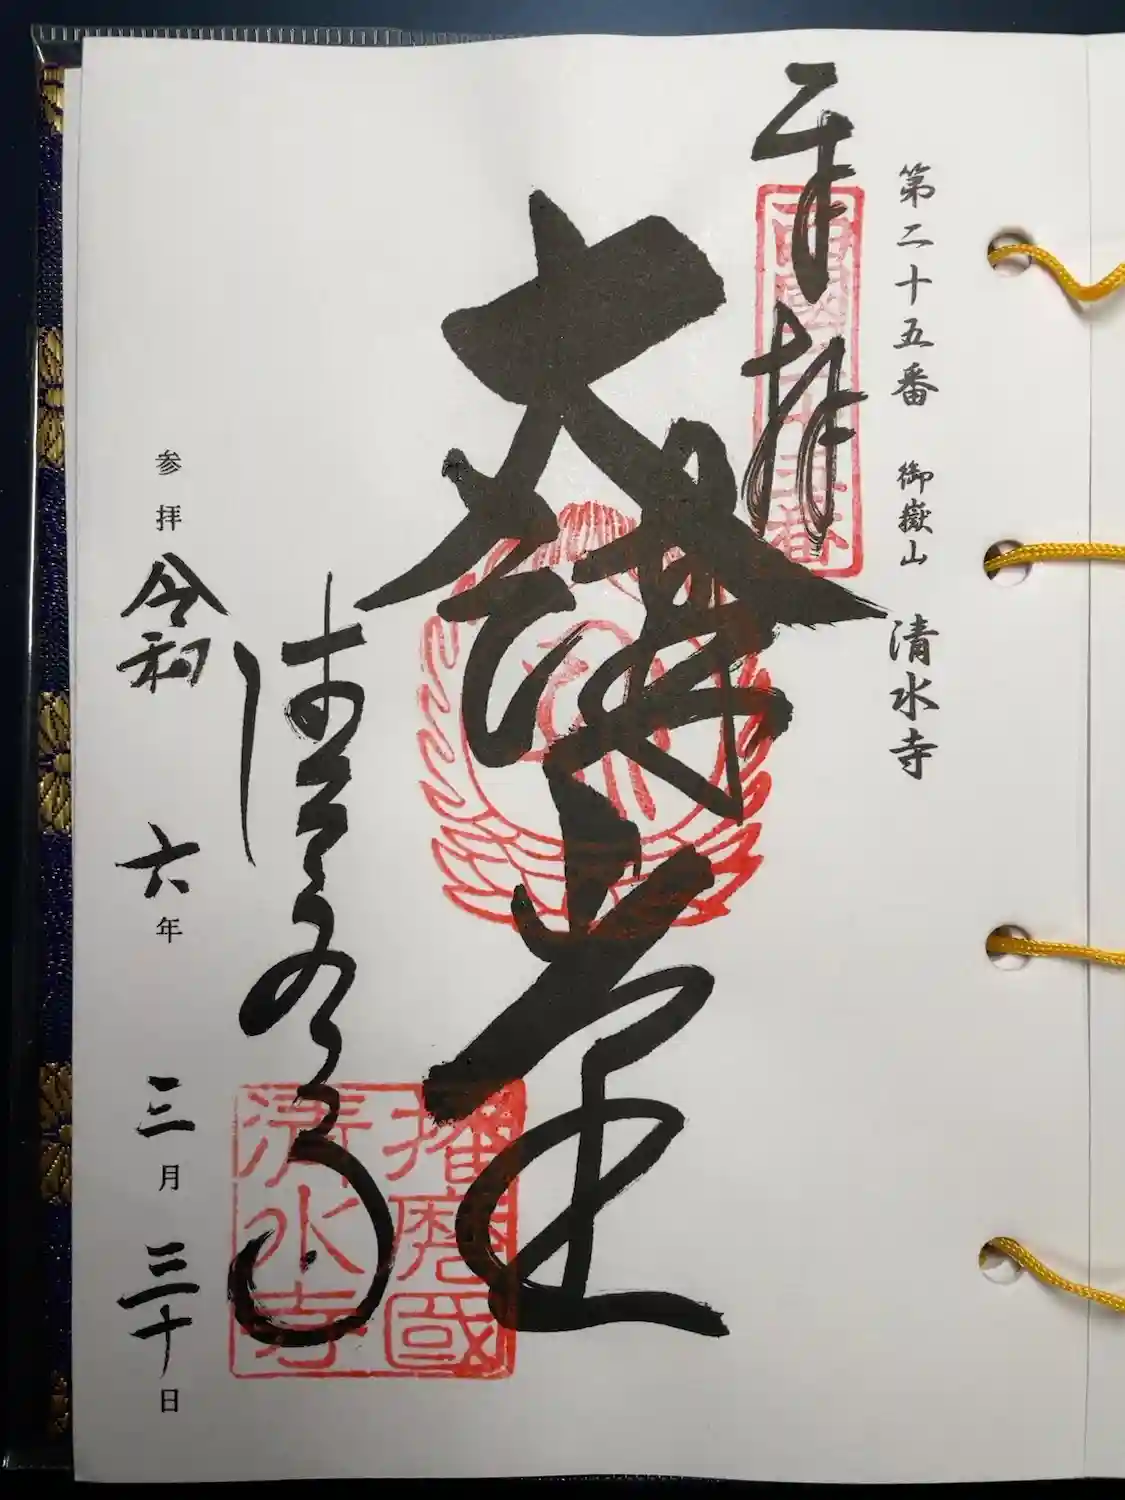 第二十五番 御嶽山 清水寺
奉拝
西国二十五番
大講堂
播磨國
清水寺
清水寺
参拝 令和 六年 三月 三十日